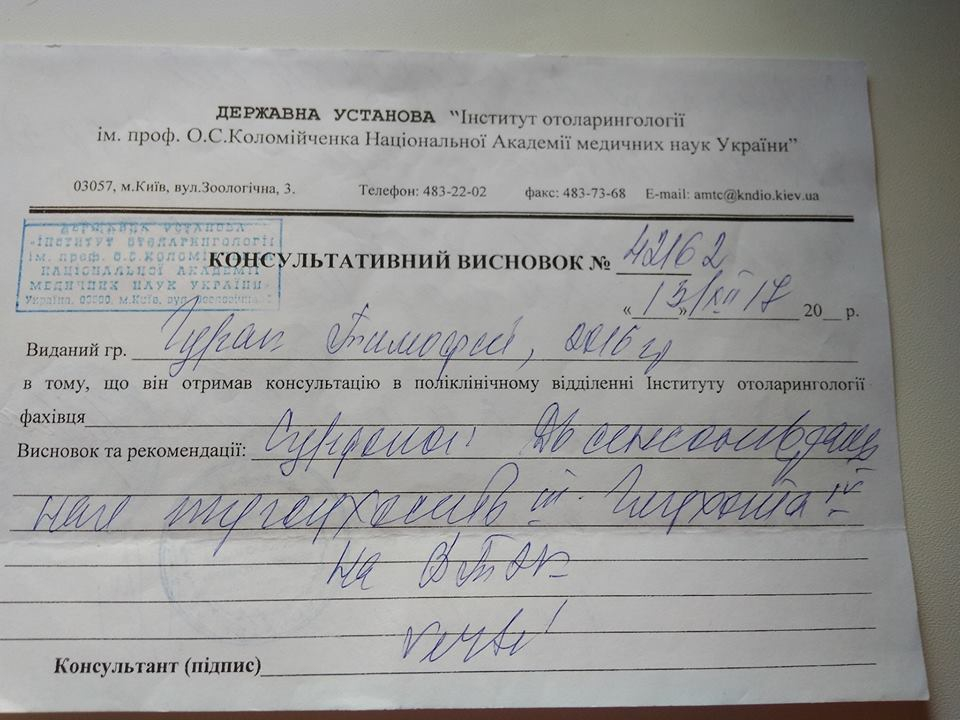 ДЕРЖАВНА УСТАНОВА "Інститут отоларингології
ім. проф. О.С.Коломійченка Національної Академії медичних наук України"
03057, м.Київ, вул.Зоологічна, 3. Телефон: 483-22-02 факс: 483-73-68 E-mail: amtc@kndio.kiev.ua
ДЕРЖАВНА УСТАНОВА
«ІНСТИТУТ ОТОЛАРИНГОЛОГІЇ
ім. проф. О.С.КОЛОМІ
НАЦІОНАЛЬНОЇ АКАДЕМІЇ
МЕДИЧНИХ НАУК УКРАЇНИ»
Україна, м.Київ, вул.
КОНСУЛЬТАТИВНИЙ ВИСНОВОК № 42162
« 13 » XII 17 20__ р.
Виданий гр. Тимофій, 2016
в тому, що він отримав консультацію в поліклінічному відділенні Інституту отоларингології
фахівця
Висновок та рекомендації: Дв
туговухість III глухота IV
на
verte!
Консультант (підпис)